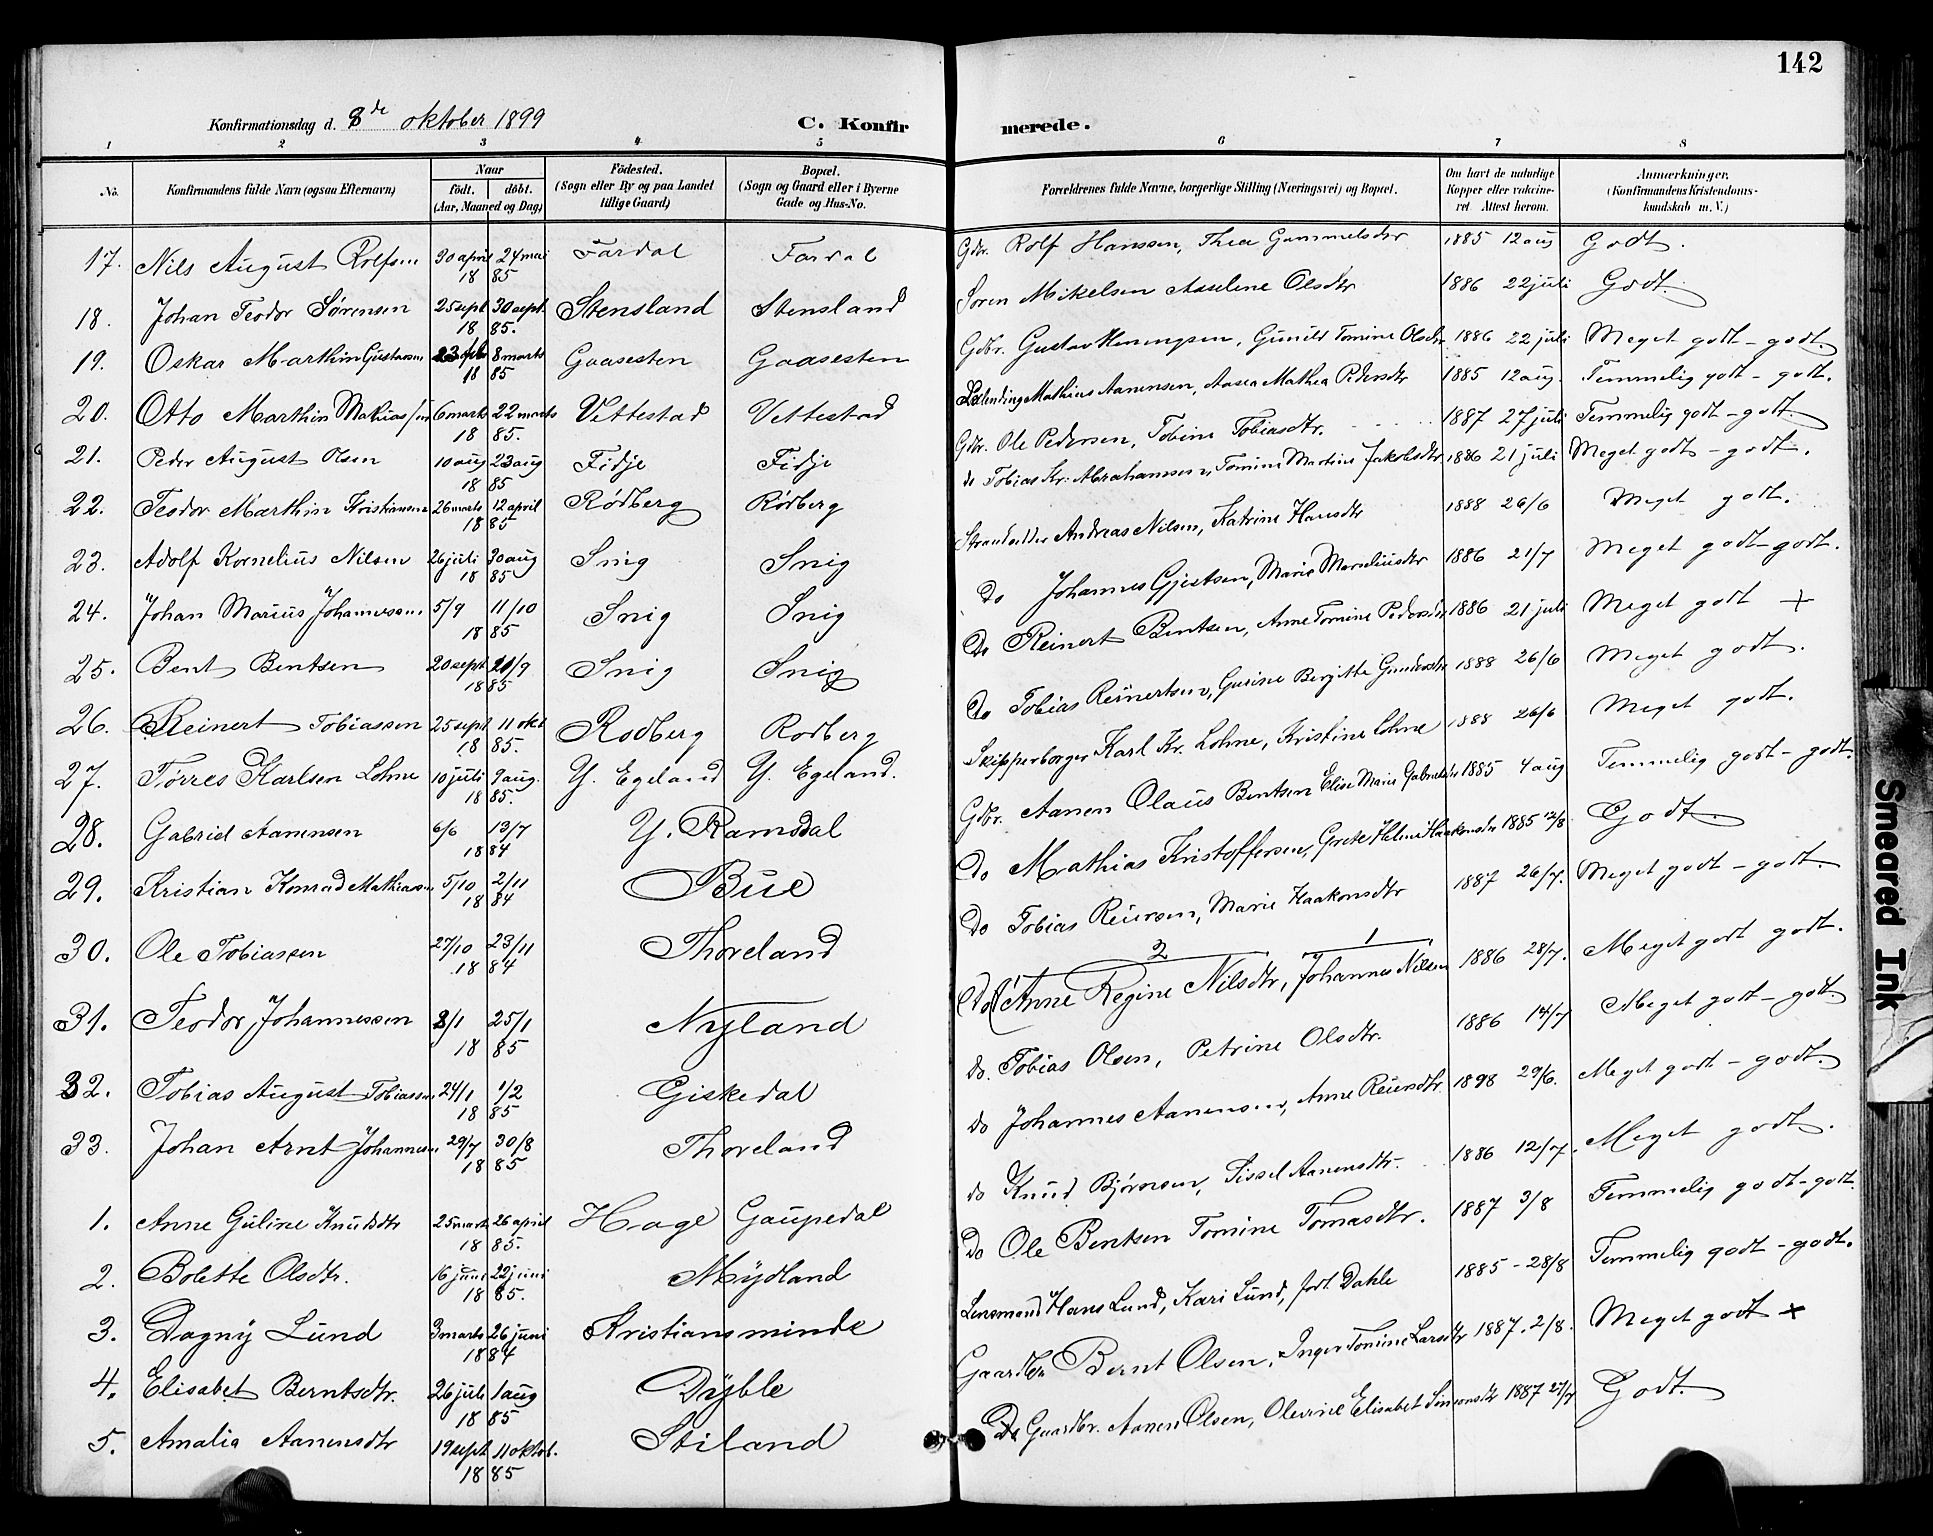 142
Konfirmationsdag d. 8de oktober 1899 C. Konfir merede.
1 2 3 4 5 6 7 8
No. Konfirmandens fulde Navn (ogsaa Efternavn) Naar født. døbt. (Aar, Maaned og Dag) Fødested. (Sogn eller By og paa Landet tillige Gaard) Bopæl. (Sogn og Gaard eller i Byerne Gade og Hus-No. Forældrenes fulde Navne, borgerlige Stilling (Næringsvei) og Bopæl. Om havt de naturlige Kopper eller vaccineret. Attest herom. Anmærkninger. (Konfirmandens Kristendomskundskab m. V.)
17. Nils August Rolfsen 30 april 24 mai 1885 Fardal Fardal Gdbr. Rolf Hanssen, Thea Gammelsdtr 1885 12 aug Godt.
18. Johan Teodor Sørensen 25 sept 30 sept. 1885. Stensland Stensland Søren Mikelsen Aaselene Olsdtr 1886 22 juli Godt.
19. Oskar Marthin Gustavsen 23 feb 8 marts 1885 Gaasesten Gaasesten Gdbr. Gustav Henningsen, Gunild Tomine Olsdtr 1886 22 juli Meget godt - godt.
20. Otto Marthin Mathiassen 6 marts 22 marts 1885. Vettestad Vettestad Mathias Aanensen, Aasea Mathea Pedersdtr 1885 12 aug. Temmelig godt - godt.
21. Peder August Olsen 10 aug 23 aug 1885 Fidje Fidje Gdbr. Ole Pedersen, Tobine Tobiasdtr. 1887 27 juli Temmelig godt - godt.
22. Teodor Marthin Kristiansen 26 marts 12 april 1885 Rødberg Rødberg do Tobias Kr. Abrahamsen, Tomine Martine Jakobsdtr 1886 21 juli Meget godt - godt.
23. Adolf Kornelius Nilsen 26 juli 30 aug 1885 Snig Snig Strandsidder Andreas Nilsen, Katrine Hansdtr 1888 26/6 Meget godt.
24. Johan Marius Johannessen 5/9 11/10 1885 Snig Snig Do Johannes Gjertsen, Marie Marnliusdtr 1886 21/7 Meget godt godt.
25. Bent Bentsen 20 sept 21/9 1885 Snig Snig Do Reinert Bentsen, Anne Tomine Pedersdtr 1886 21 juli Meget godt +
26. Reinert Tobiassen 25 sept 11 okt 1885. Rodberg Rodberg Do Tobias Reinertsen, Gurine Bergitte Gundersdtr 1888 26/6 Meget godt.
27. Tørres Karlsen Lohne 10 juli 9 aug. 1885. Y. Egeland Y. Egeland. Skipperborger Karl Kr. Lohne, Kristine Lohne 1888 26/6 Meget godt.
28. Gabriel Aanensen 6/6 13/7 1884 Y. Ramsdal Gdbr. Aanen Olaus Bentsen Elise Marie Gabrielsdtr 1885 4 aug Temmelig godt - godt.
29. Kristian Konrad Mathiassen 5/10 2/11 1884 Bue Do Mathias Kristoffersen, Grete Helene Haakonsdtr 1885 12/8 Godt.
30. Ole Tobiassen 27/10 23/11 1884 Thoreland Do Tobias Reiersen, Marie Haakonsdtr 1887 26/7. Meget godt - godt.
31. Teodor Johannessen 8/1 25/1 1885 Nyland Do 2 Anne Regine Nilsdtr, 1 Johannes Nilsen 1886 28/7. Meget godt godt.
32. Tobias August Tobiassen 24/1 1/2 1885 Giskedal do. Tobias Olsen, Petrine Olsdtr. 1886 14/7 Meget godt - godt.
33. Johan Arnt Johannesen 29/7 30/8 1885 Thoreland do Johannes Aanensen, Anne Reiersdtr 1898 29/6. Meget godt - godt.
1. Anne Guline Knudsdtr 25 marts 26 april 1885. Hage Gaupedal do Knud Bjørnsen, Sissel Aanensdtr. 1886 12/7. Meget godt.
2. Bolette Olsdtr. 16 juni 22 juni 1885. Mydland Do Ole Bentsen Tomine Tomasdtr. 1887 3/8 Temmelig godt - godt.
3. Dagny Lund 3 marts 26 juni 1884 Kristiansminde Lensmand Hans Lund, Kari Lund, født Dahle 1885 - 28/8 Temmelig godt - godt.
4. Elisabet Berntsdtr. 26 juli 1 aug 1885 Dyble Gaardbr Bernt Olsen, Inger Tomine Larsdtr 1887. 2/8. Meget godt +
5. Amalia Aanensdtr 19 sept 11 oktob. 1885 Stiland Gaardbr. Aanen Olsen, Olevine Elisabet Simonsdtr 1887 27/7 Godt.
Smeared Ink